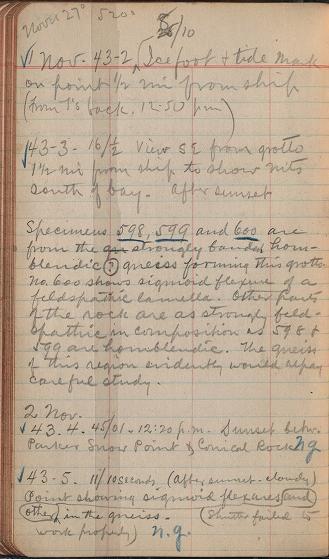 Nov. 27° 520.
5/10
√1 Nov. 43-2, Ice foot + tide mark
on point 1/2 mi from ship
(from 1's back, 12:50 pm)
√43-3- 16/½ View SE from grotto
1½ mi from ship to show nits
south of bay. After sunset
Specimens 598, 599 and 600 are
from the strongly banded horn-
blendic (?) gneiss forming this grotto
No. 600 shows sigmoid flexure of a
feldspathic lamella. Other parts
of the rock are as strongly feld-
spathic in composition as 598 &
599 are hornblendic. The gneiss
of this region evidently would repay
careful study.
2 Nov.
√43.4. 45/01 - 12:20 p.m. Sunset betw.
Parker Snow Point & Conical Rock ng
√43-5. 11/10 seconds (after sunset - cloudy)
Point showing sigmoid flexures (and
other) in the gneiss. (Shutter failed to
work properly) n.g.